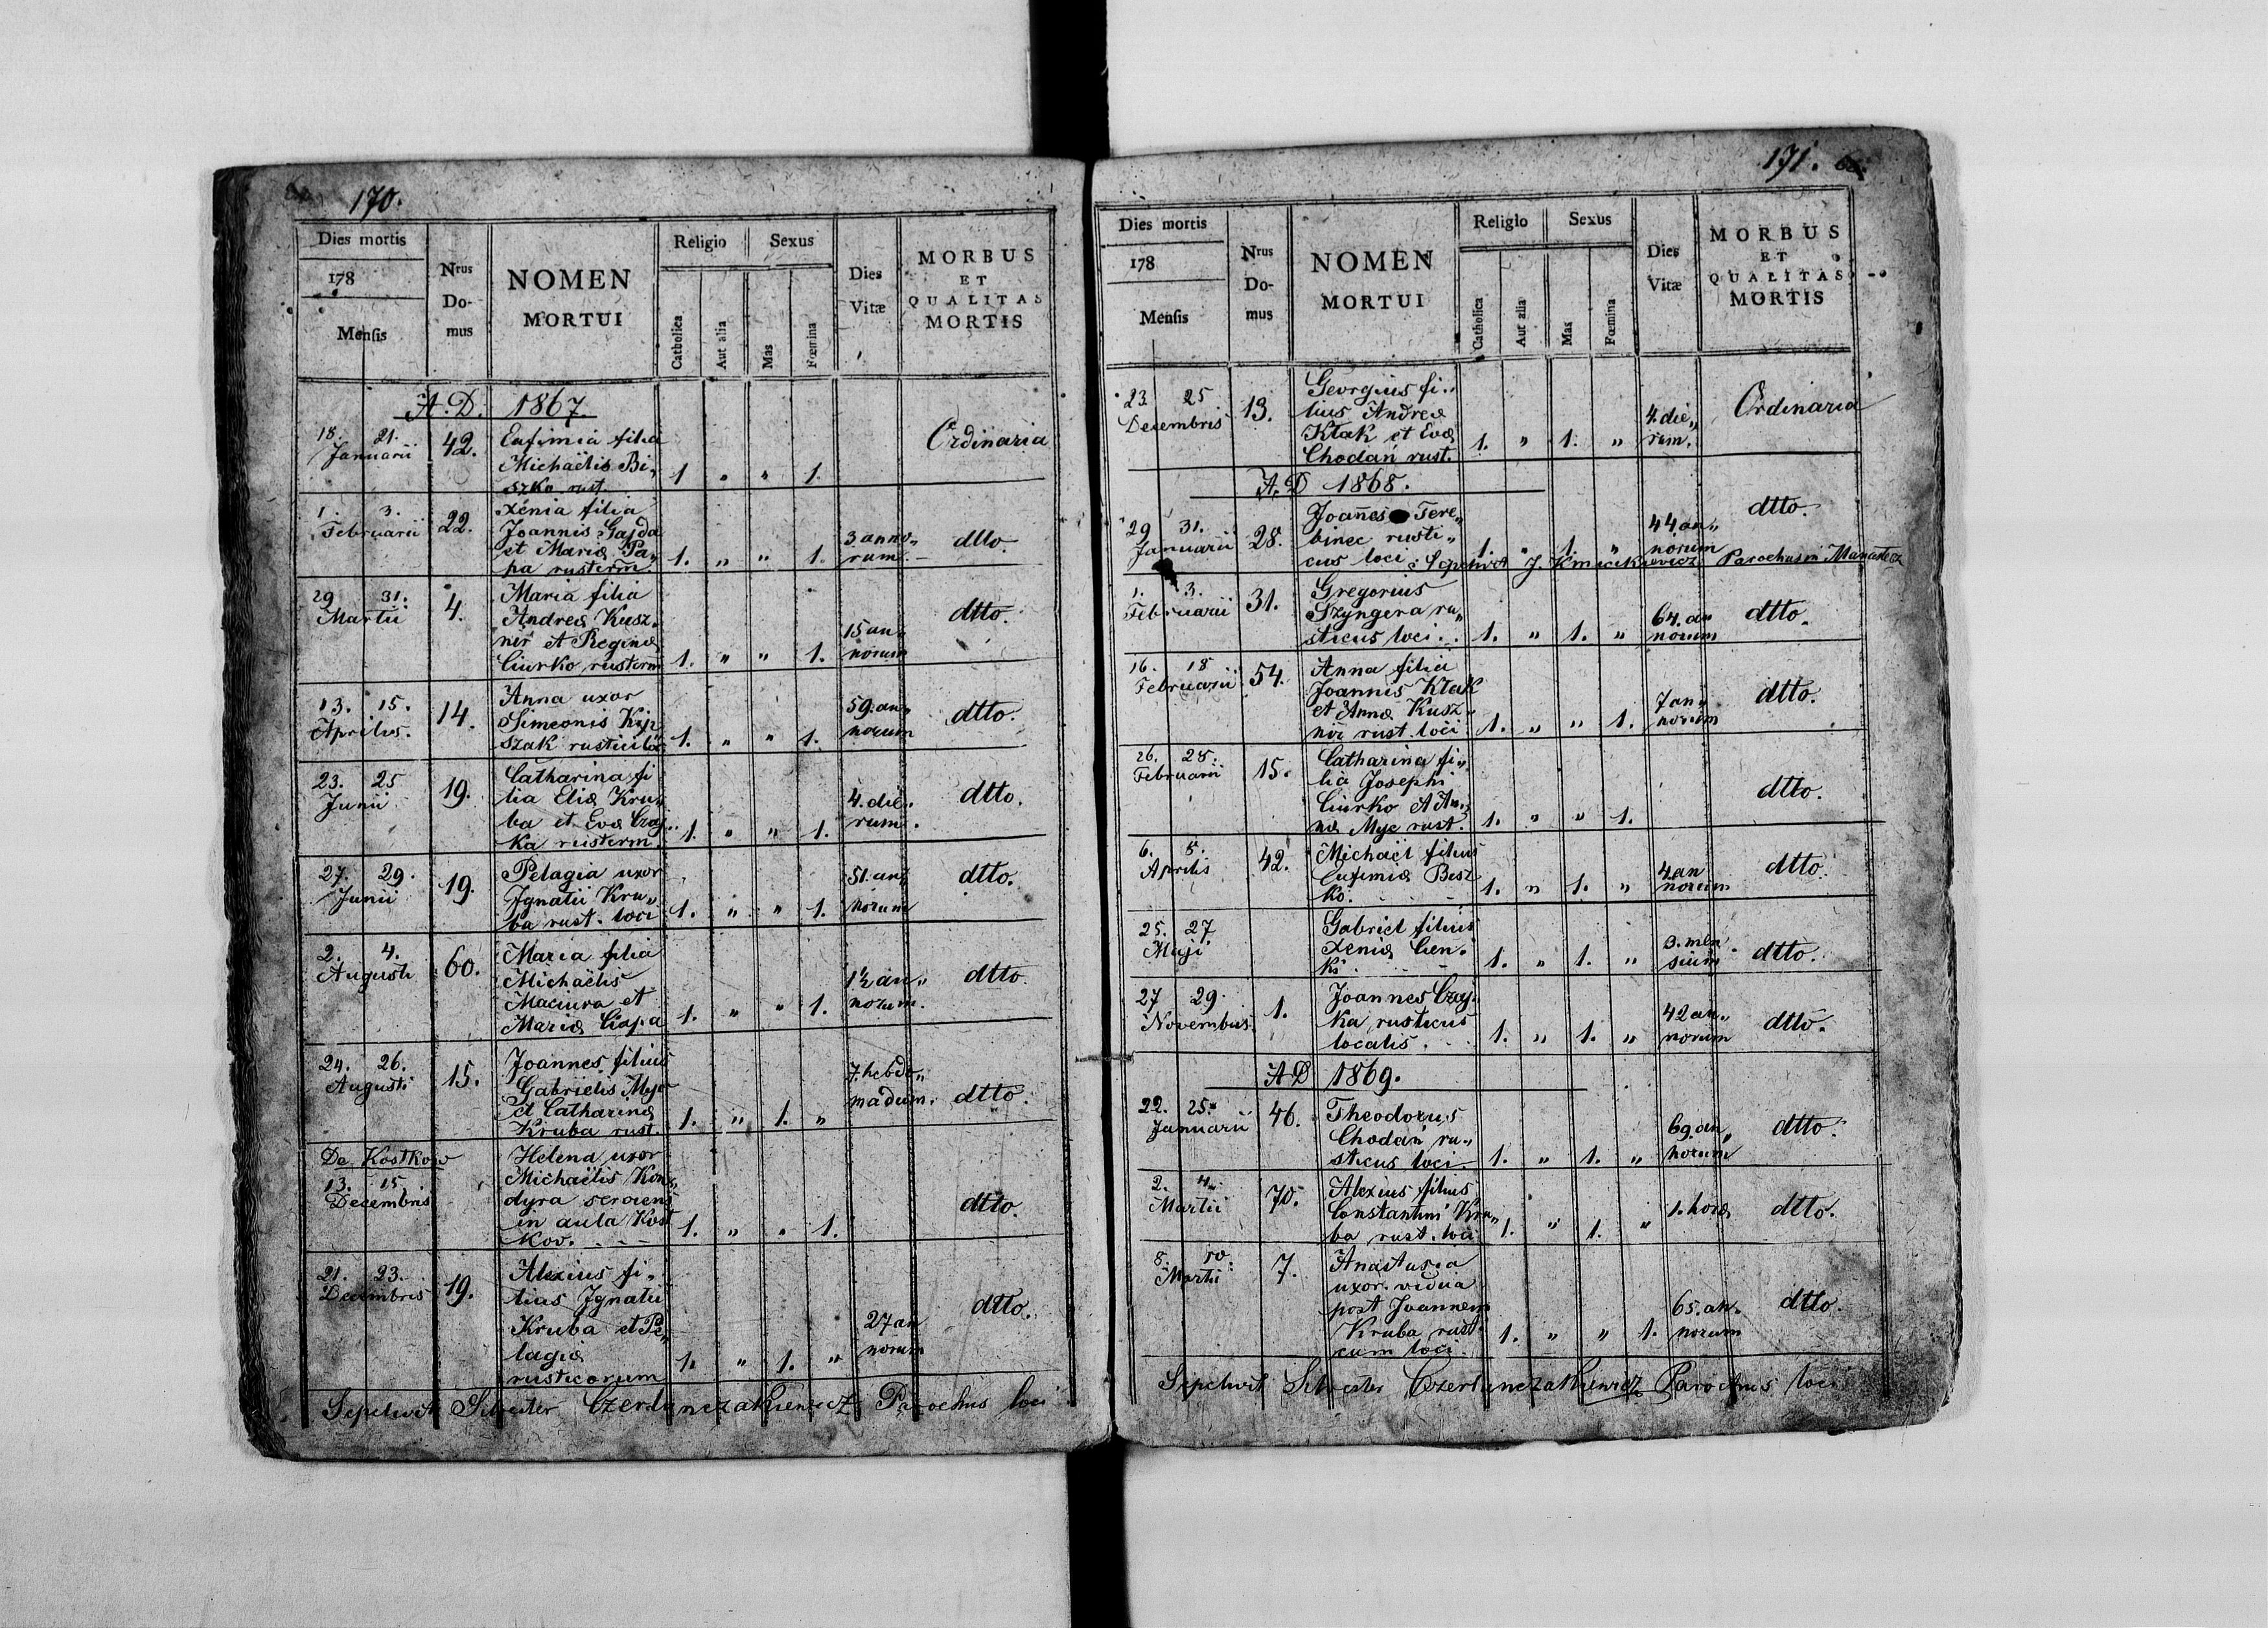 170.
Dies mortis
178
Mensis
Nrus Domus
NOMEN MORTUI
Religio
Catholica
Aut alia
Sexus
Mas
Fœmina
Dies Vitæ
MORBUS ET QUALITAS MORTIS
A. D. 1867.
18. 21. Januarii 42. Eufimia filia
Michaëlis Bi„
szko rust. 1 „ „ 1. Ordinaria
1. 3. Februarii 22. Xenia filia
Joannis Gajda
et Mariæ Pa„
pa rusticrm. 1. „ „ 1. 3 anno„
rum. dtto.
29 31. Martii 4. Maria filia
Andreæ Kusz„
nir et Reginæ
Ciurko rusticrm 1. „ „ 1. 15 an„
norum dtto.
13. 15. Aprilis. 14. Anna uxor
Simeonis Kip„
szak rustici loc 1. „ „ 1. 59. an„
norum dtto.
23. 25 Junii 19. Catharina fi
lia Eliæ Kru„
ba et Evæ Czaj„
ka rusticrm 1. „ „ 1. 4. die„
rum. dtto.
27. 29. Junii 19. Pelagia uxor
Ignatii Kru„
ba rust. loci 1. „ „ 1. 51. an„
norum dtto.
2. 4. Augusti 60. Maria filia
Michaëlis
Maciura et
Mariæ Ciapa 1. „ „ 1. 1½ an„
norum. dtto
24. 26. Augusti 15. Joannes filius
Gabrielis Myc
et Catharinæ
Kruba rust. 1. „ 1. „ 7. hebdo„
madum. dtto.
De Kostkow
13. 15. Decembris Helena uxor
Michaëlis Kon„
dyra serviens
in aula Kost
kov. 1. „ „ 1. dtto.
21. 23. Decembris 19. Alexius fi„
lius Ignatii
Kruba et Pe„
lagiæ
rusticorum 1. „ 1. „ 27 an
norum dtto.
Sepelivit Silvester Czerlunczakiewicz Parochus loci
171.
Dies mortis
178
Mensis
Nrus Domus
NOMEN MORTUI
Religio
Catholica
Aut alia
Sexus
Mas
Fœmina
Dies Vitæ
MORBUS ET QUALITAS MORTIS
23 25 Decembris 13. Georgius fi„
lius Andreæ
Kłak et Evæ
Chodań rust. 1. „ 1. „ 4. die„
rum. Ordinaria
A. D 1868.
29 31. Januarii 28. Joañes Tere„
binec rusti„
cus loci 1. „ 1. „ 44 an„
norum dtto.
Sepelivit J. Kmicikiewicz Parochus in Manasterz
1. 3. Februarii 31. Gregorius
Szyngera ru„
sticus loci. 1. „ 1. „ 64. an
norum dtto.
16. 18 Februarii 54. Anna filia
Joannis Kłak
et Annæ Kusz„
nir rust. loci 1. „ „ 1. 7 an„
norum dtto.
26. 28. Februarii 15. Catharina fi„
lia Josephi
Ciurko et An„
næ Myc rust. 1. „ „ 1. dtto.
6. 8. Aprilis 42. Michaël filius
Eufimiæ Bisz
ko. 1. „ 1. „ 4 an
norum dtto.
25. 27 Maji Gabriel filius
Xeniæ Cien„
ki 1. „ 1. „ 3. men
sium dtto.
27 29. Novembris 1. Joannes Czaj„
ka rusticus
localis. 1. „ 1. „ 42 an„
norum dtto.
A D 1869.
22. 25. Januarii 46. Theodorus
Chodań ru„
sticus loci. 1. „ 1. „ 69. an„
norum dtto.
2. 4. Martii 70. Alexius filius
Constantini Kru„
ba rust. loci 1. „ 1. „ 1. horæ dtto.
8. 10. Martii 7. Anastasia
uxor. vidua
post Joannem
Kruba rusti
cum loci. 1. „ „ 1. 65. an„
norum dtto.
Sepelivit Silvester Czerlunczakiewicz Parochus loci